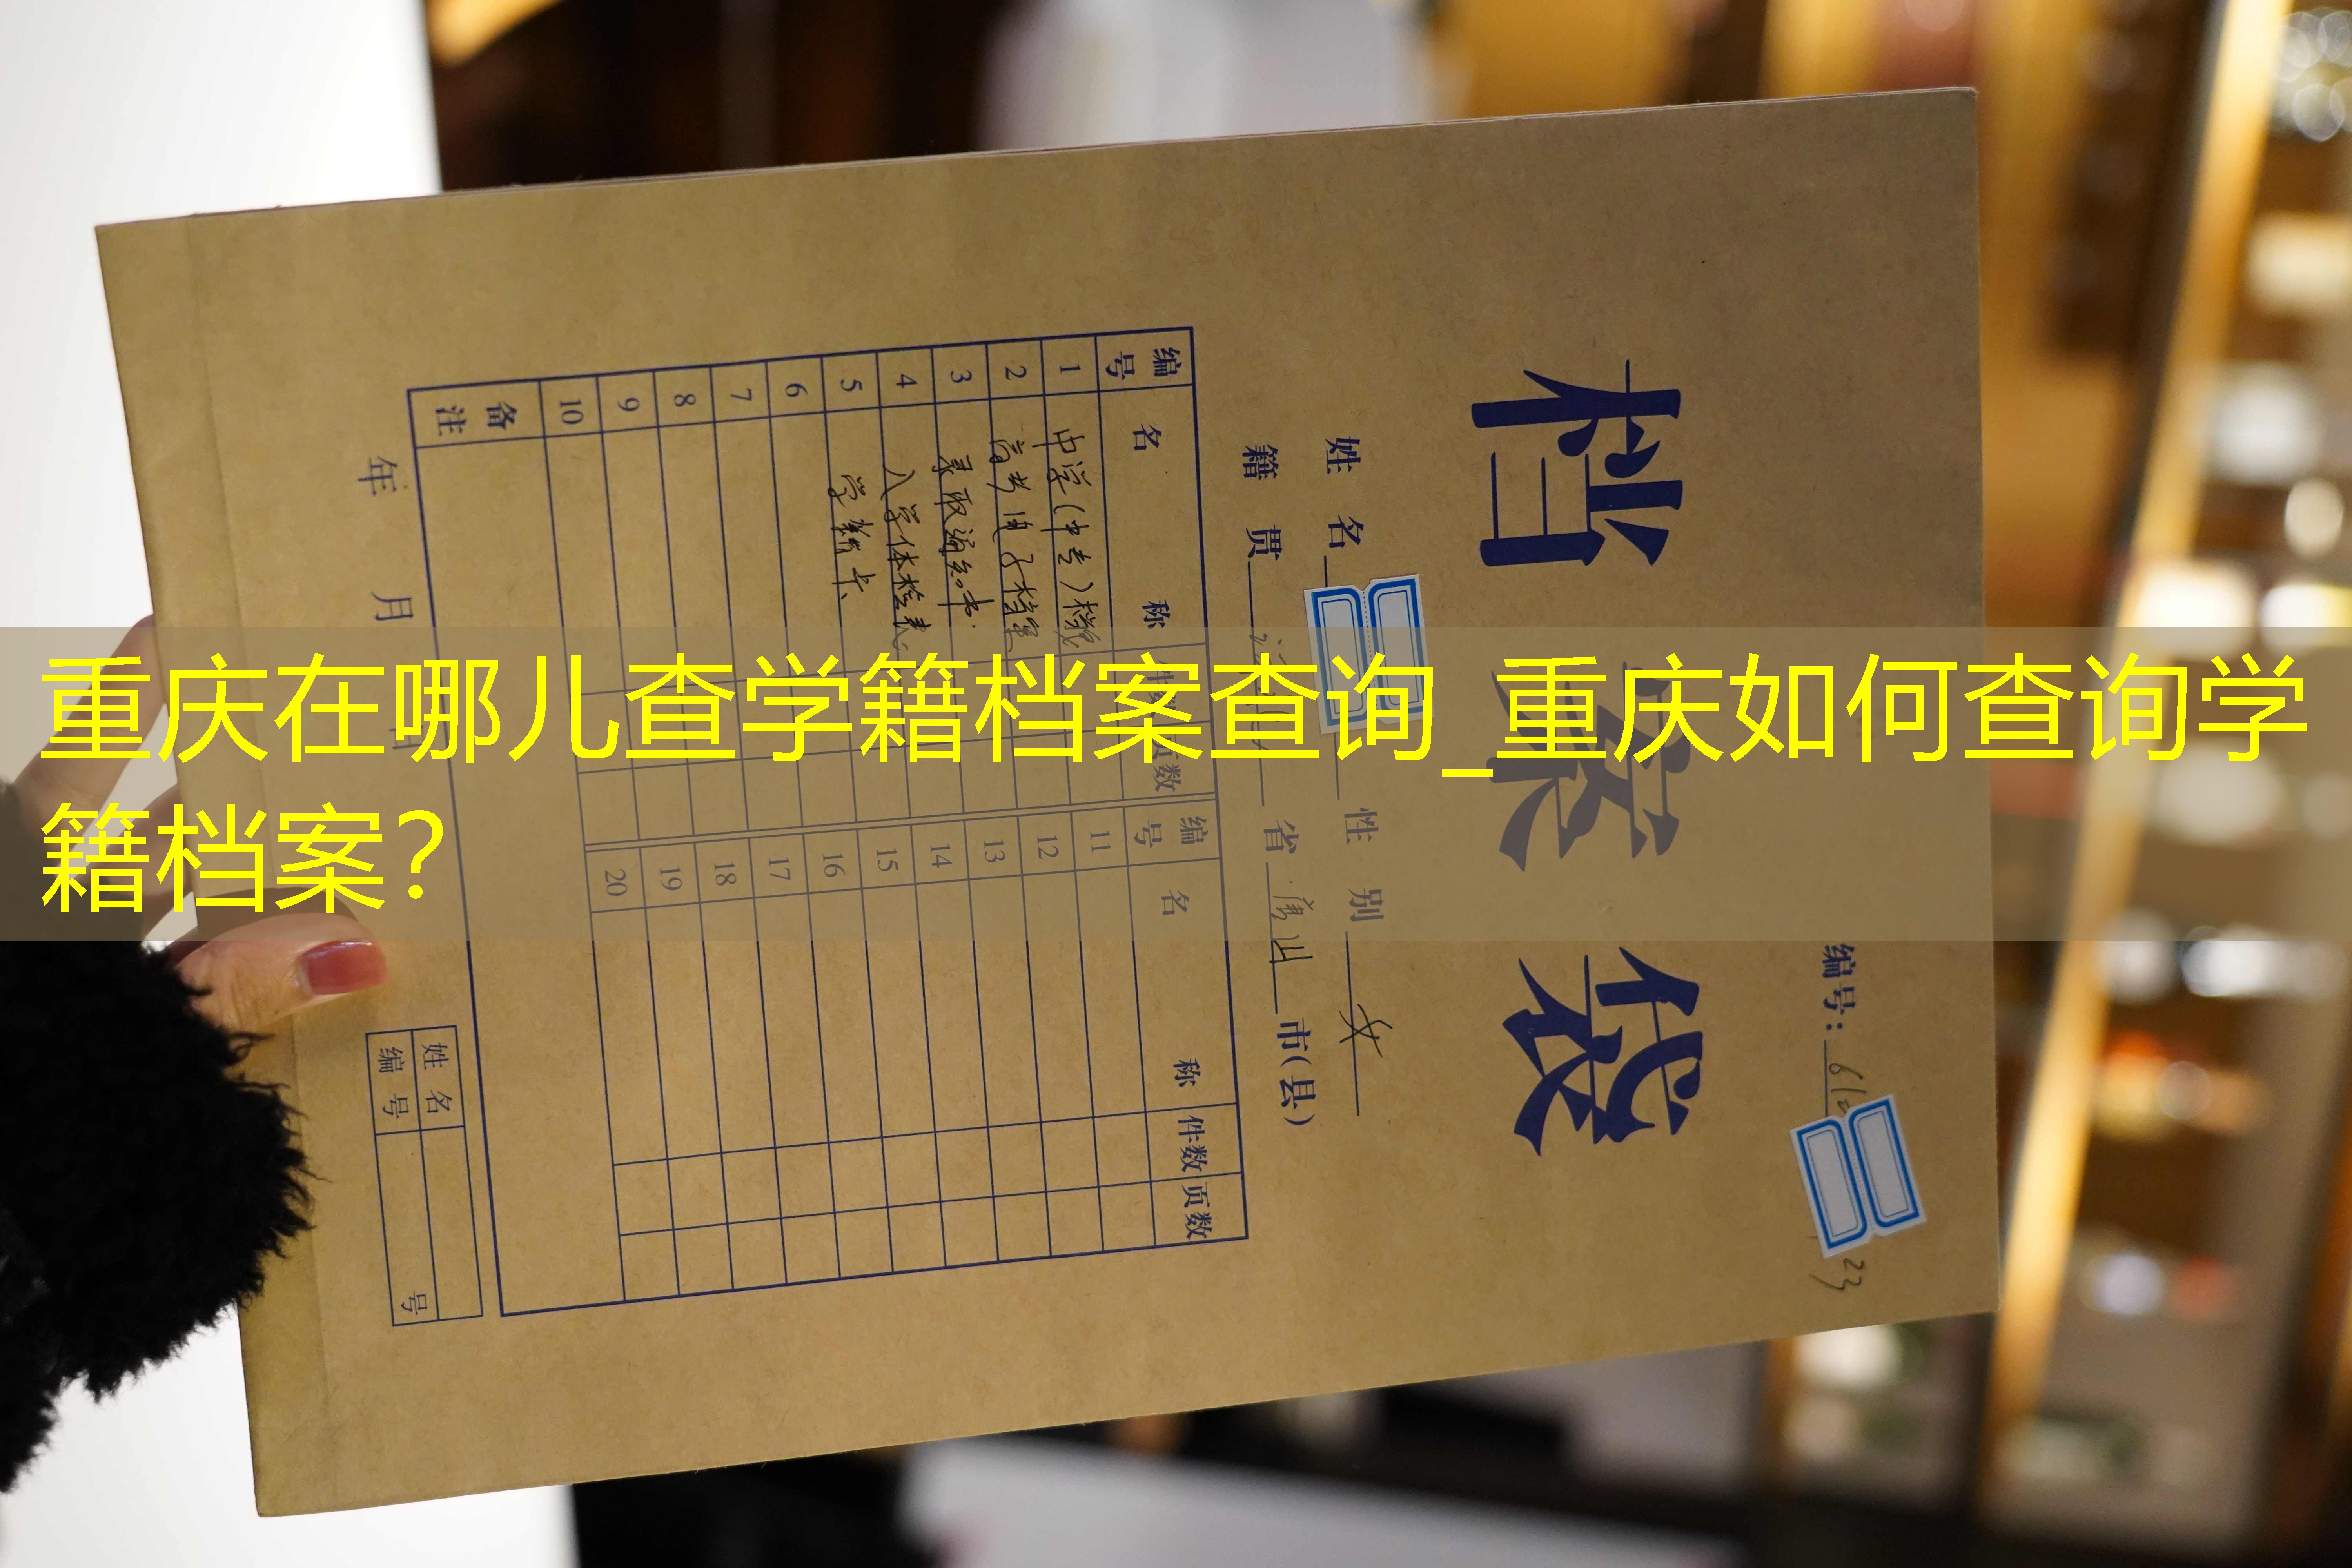 重庆在哪儿查学籍档案查询_重庆如何查询学
籍档案？
编号：
档案袋
姓 名 性 别 女
籍 贯 省 唐山 市(县)
编号 名 称 件数 页数 编号 名 称 件数 页数
1 中学(中专)档案 11
2 高考电子档案 12
3 录取通知书 13
4 入学体检表 14
5 学籍卡 15
6 16
7 17
8 18
9 19
10 20
备注
年 月 日
姓 名
编 号 号